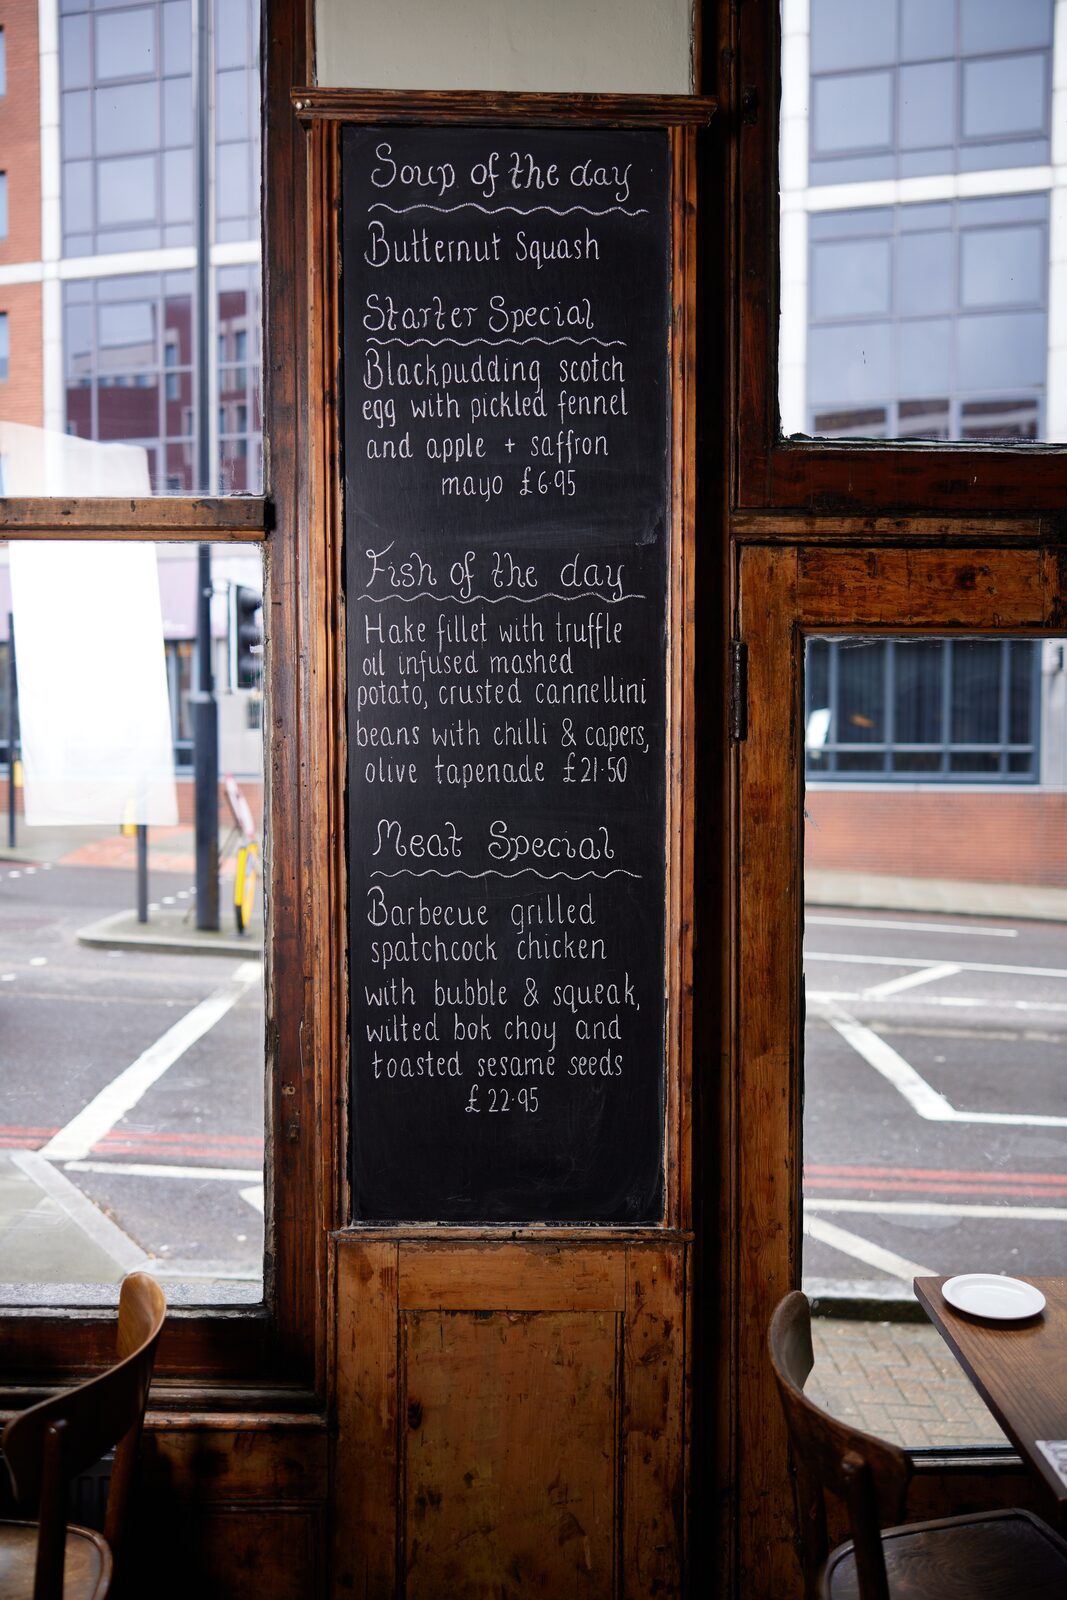 Soup of the day
Butternut Squash
Starter Special
Blackpudding scotch
egg with pickled fennel
and apple + saffron
mayo £6.95
Fish of the day
Hake fillet with truffle
oil infused mashed
potato, crusted cannellini
beans with chilli & capers,
olive tapenade £21.50
Meat Special
Barbecue grilled
spatchcock chicken
with bubble & squeak,
wilted bok choy and
toasted sesame seeds
£22.95